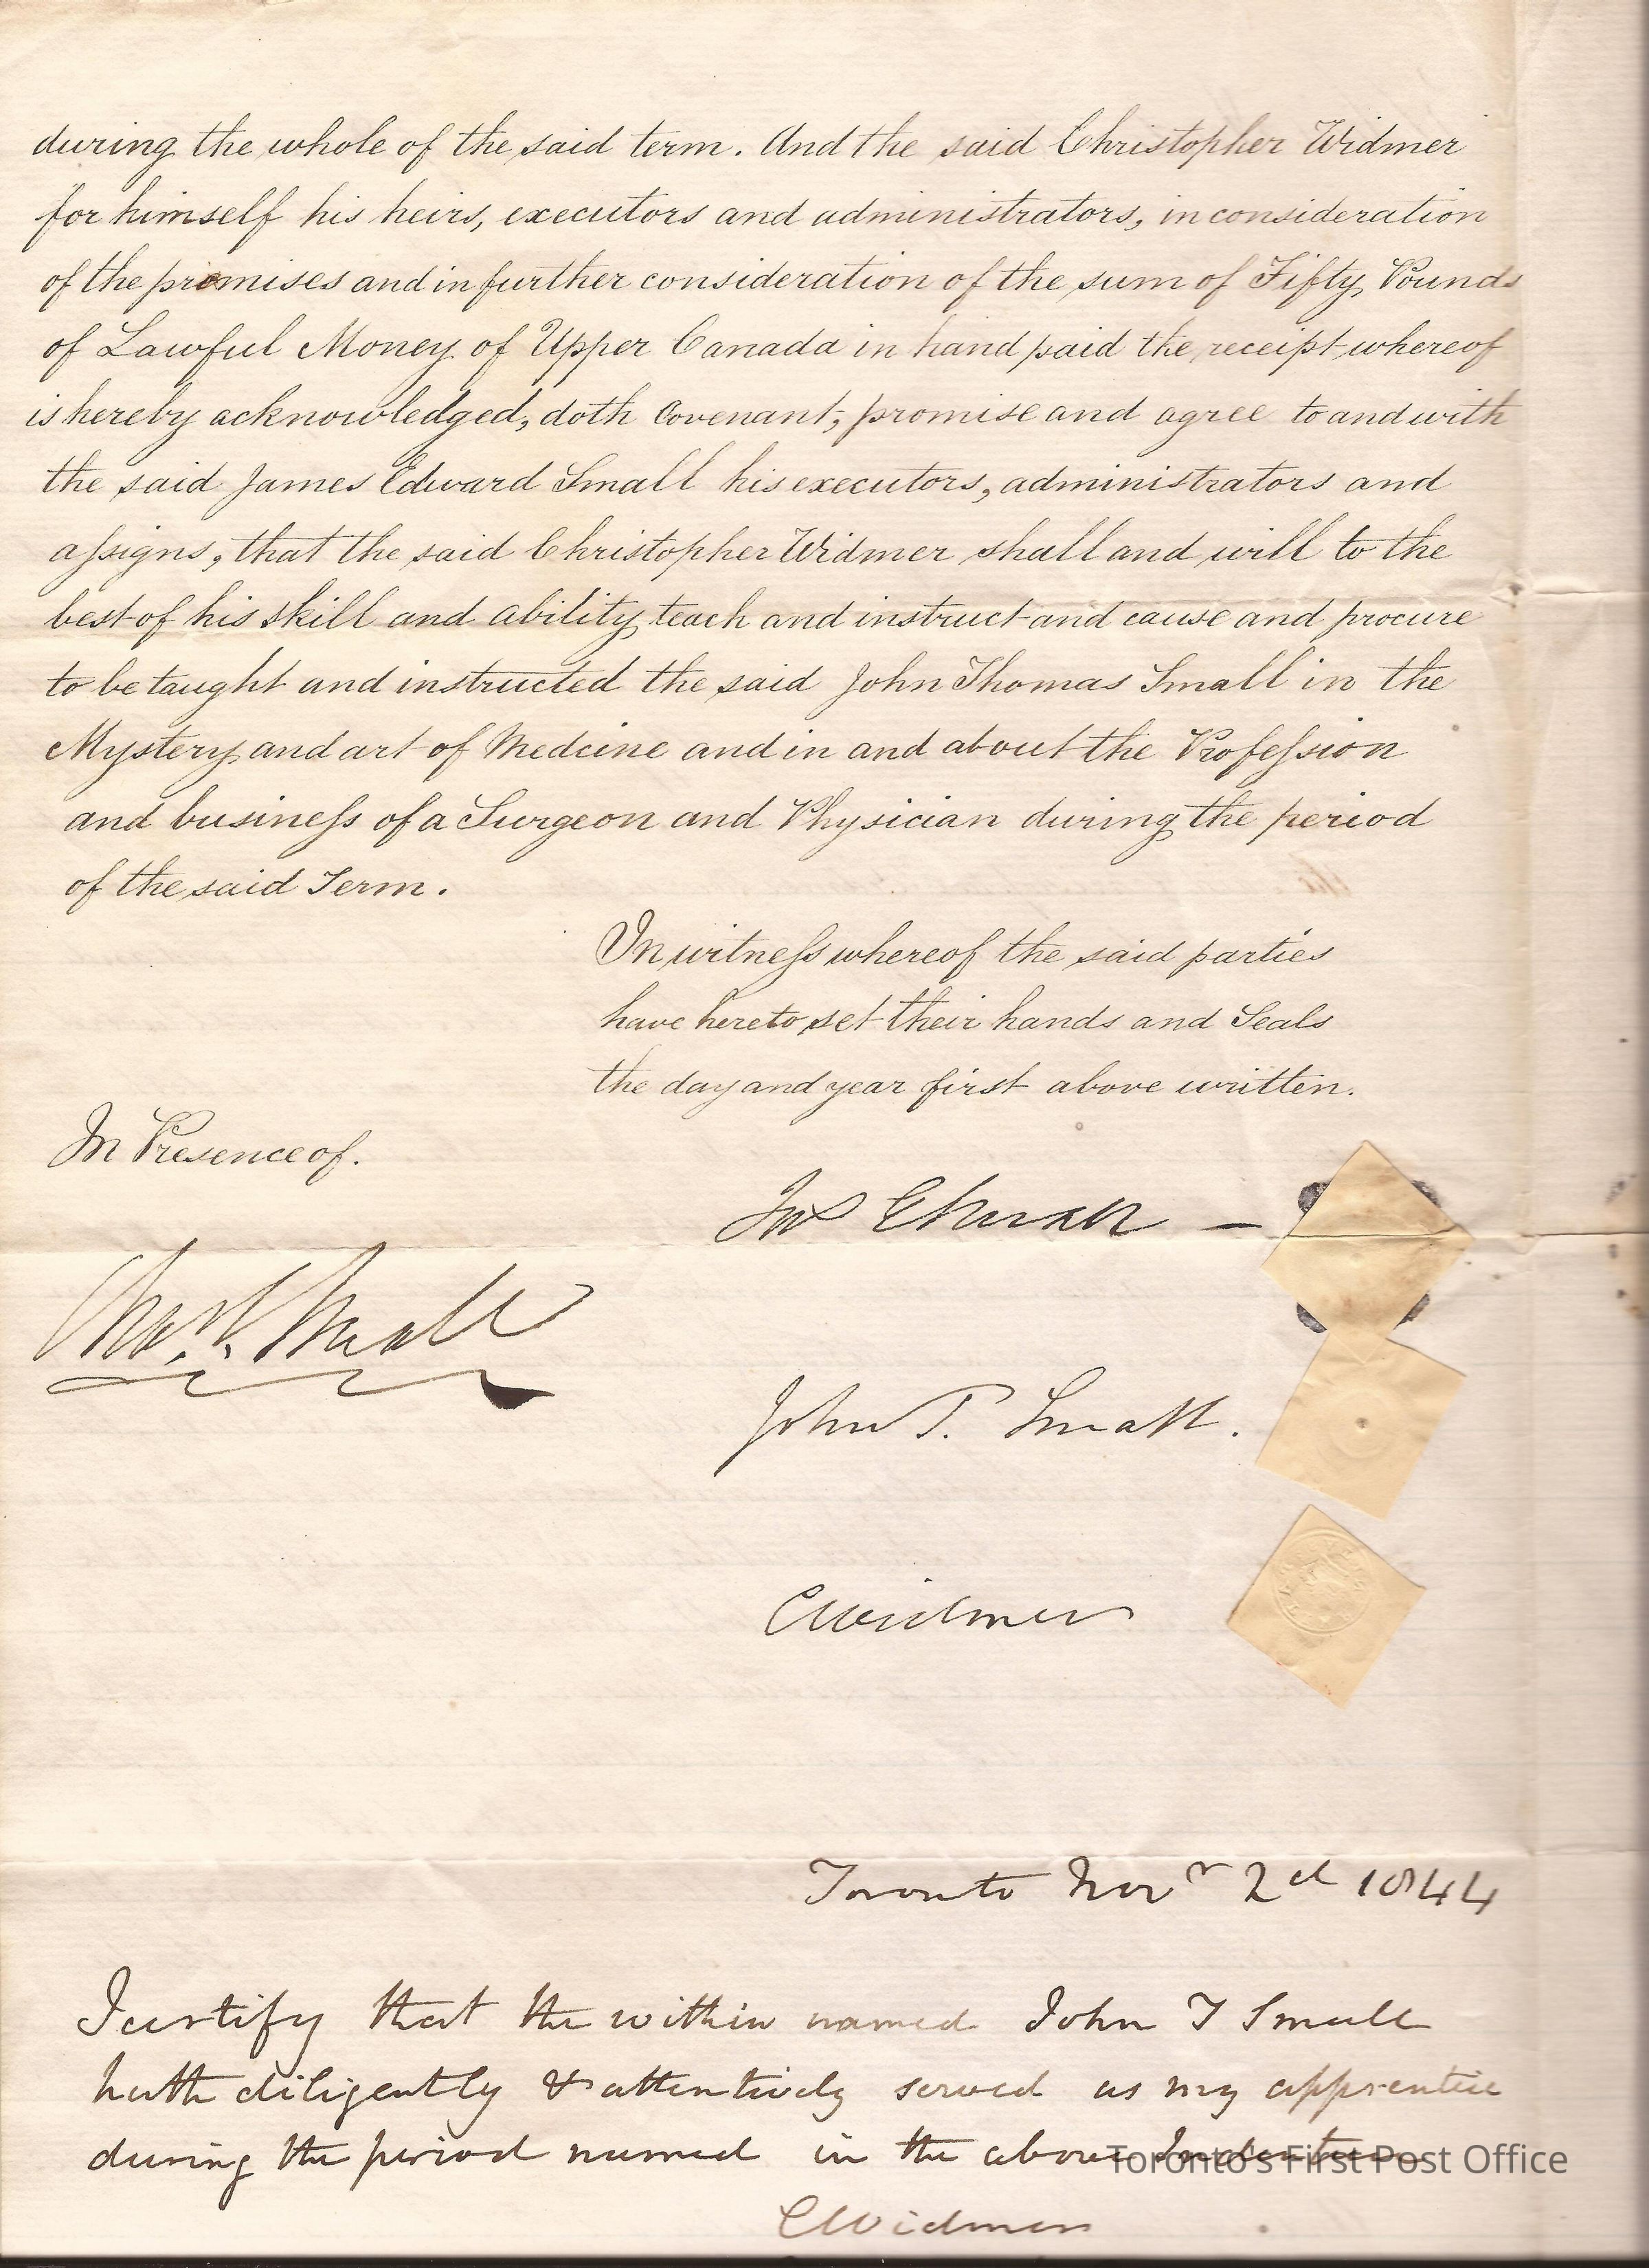 during the whole of the said term. And the said Christopher Widmer
for himself his heirs, executors and administrators, in consideration
of the promises and in further consideration of the sum of Fifty Pounds
of Lawful Money of Upper Canada in hand paid the receipt whereof
is hereby acknowledged, doth Covenant, promise and agree to and with
the said James Edward Small his executors, administrators and
aſsigns, that the said Christopher Widmer shall and will to the
best of his skill and ability teach and instruct and cause and procure
to be taught and instructed the said John Thomas Small in the
Mystery and art of Medcine and in and about the Profeſsion
and buſineſs of a Surgeon and Physician during the period
of the said Term.
In witneſs whereof the said parties
have hereto set their hands and Seals
the day and year first above written.
In Presence of.
Small
John T. Small.
CWidmer
Toronto Novr 2d 1844
I certify that the within named John T Small
hath diligently & attentively served as my apprentice
during the period named in the above Indenture
Toronto's First Post Office
CWidmer